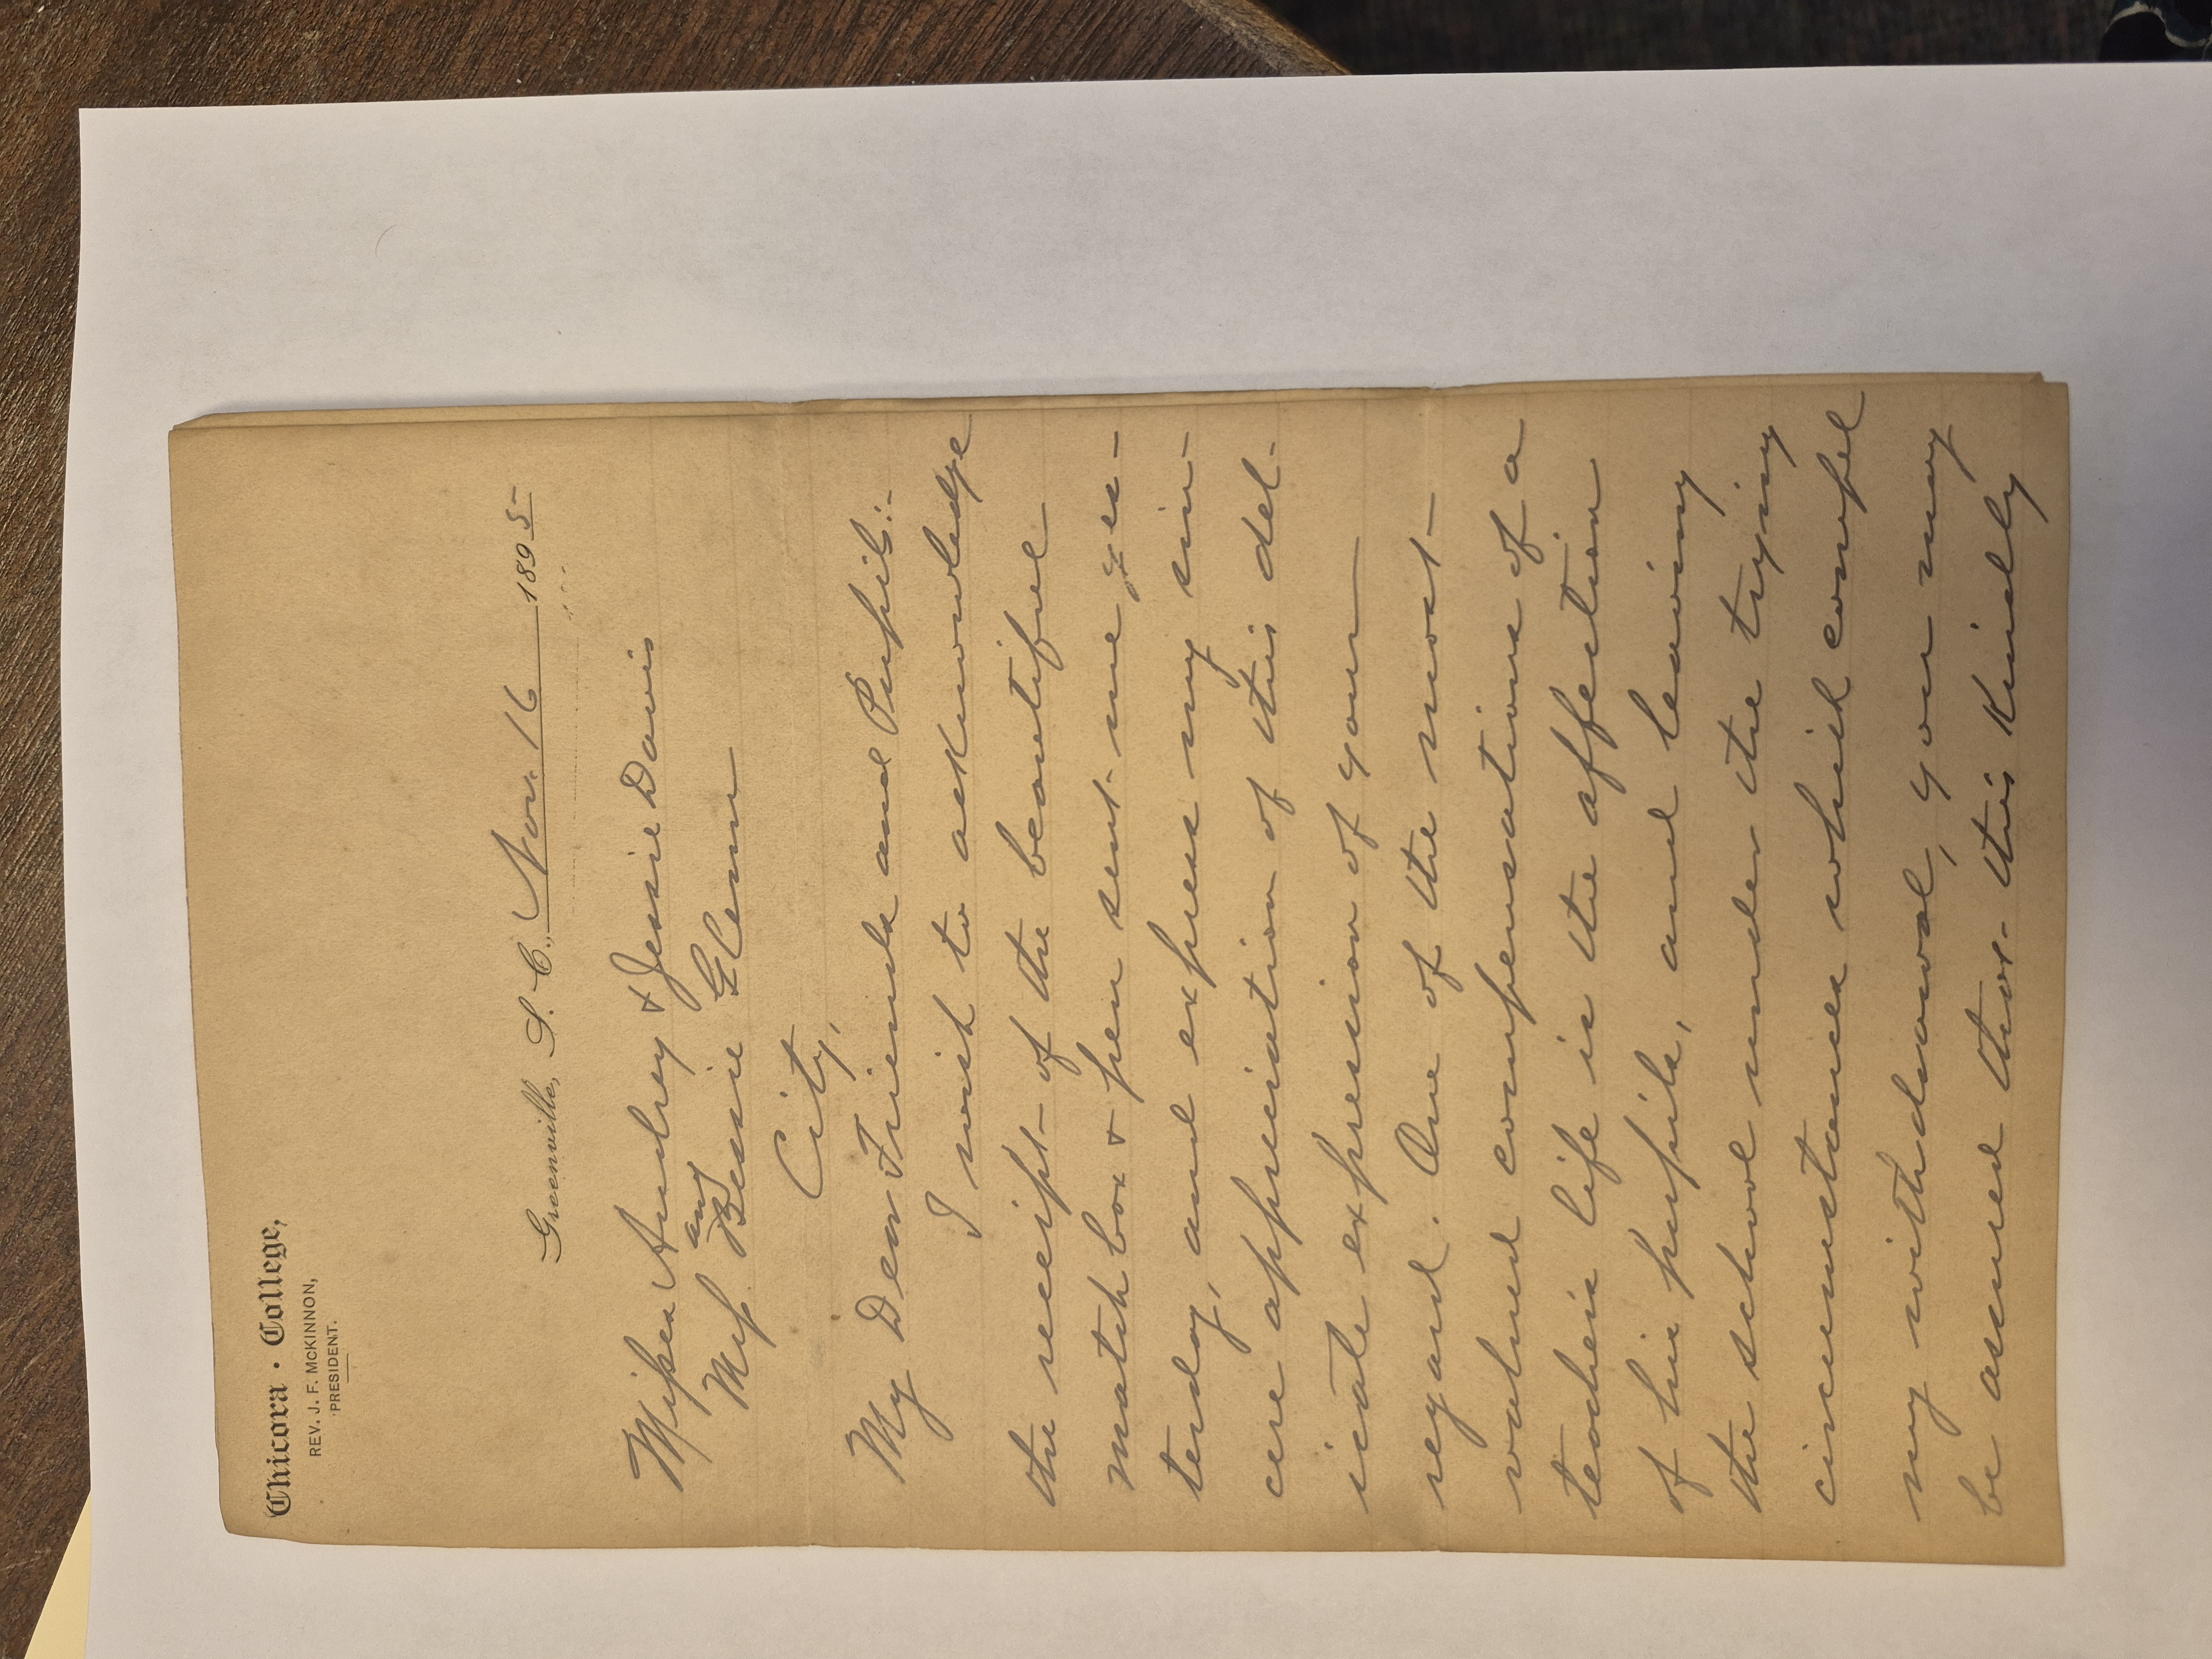 Chicora · College,
REV. J. F. McKINNON,
PRESIDENT.
Greenville, S. C., Nov. 16 1895
Misses Audrey & Jessie Davis
and
Miss Bessie Glenn
City,
My Dear Friends and Pupils:-
I wish to acknowledge
the receipt of the beautiful
match box & pen sent me yes-
terday, and express my sin-
cere appreciation of this del-
icate expression of your
regard. One of the most
valued compensations of a
teacher's life is the affection
of his pupils, and leaving
the school under the trying
circumstances which compel
my withdrawal, you may
be assured that this kindly